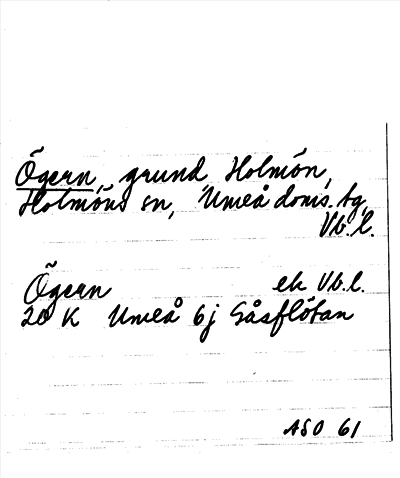 Ögern, grund Holmön,
Holmöns sn, Umeå doms. tg,
Vb. l.
Ögern ek Vb. l.
20 K Umeå 6j Gåsflötan
ASO 61